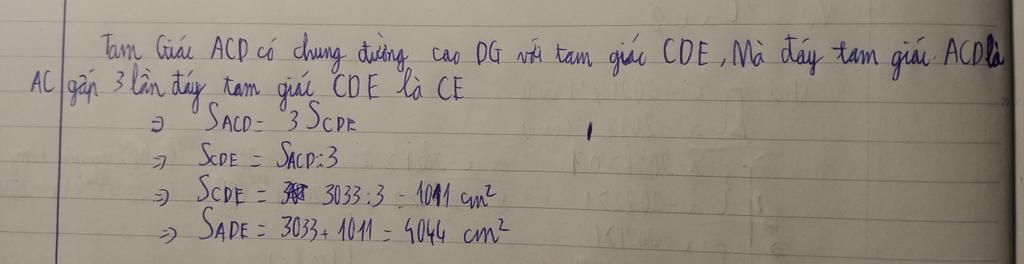 Tam Giác ACD có chung đường cao DG với tam giác CDE, Mà đáy tam giác ACD là
AC gấp 3 lần đáy tam giác CDE là CE
=> SACD = 3 SCDE
=> SCDE = SACD:3
=> SCDE = 3033:3 = 1011 cm²
=> SADE = 3033 + 1011 = 4044 cm²